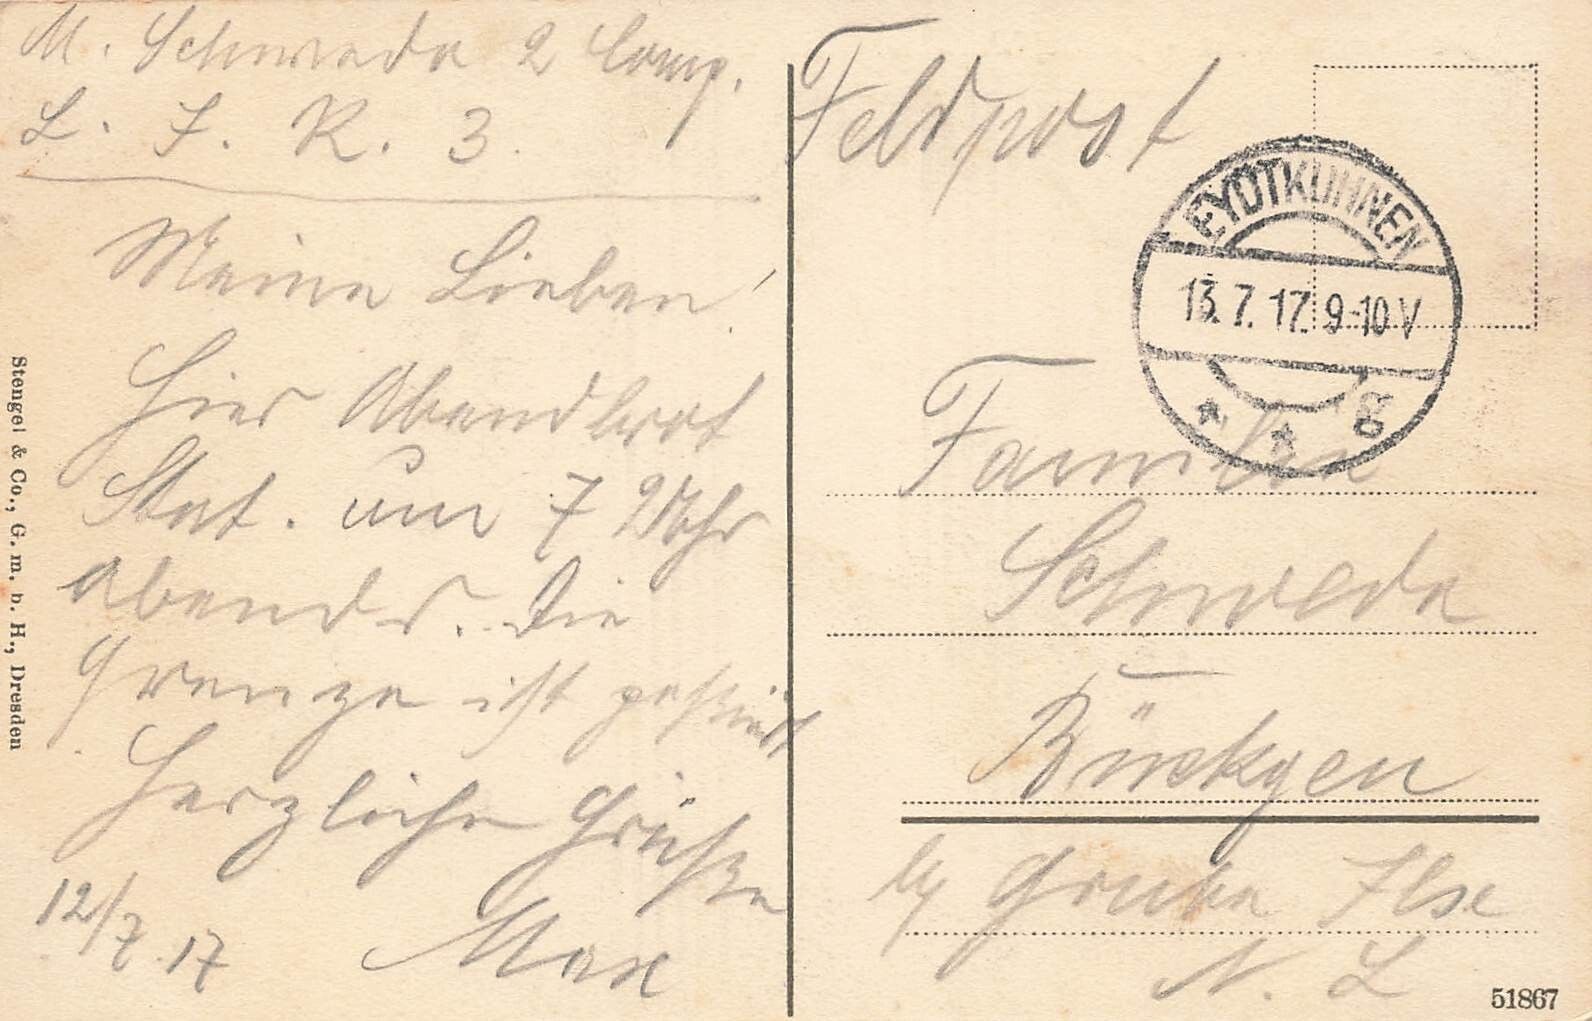 M. Schweda 2 Comp.
L. I. R. 3.
Meine Lieben!
Hier Abendbrot
Stat. um 7 Uhr
Abends. Die
Grenze ist passiert
Herzliche Grüße
Max
12/7.17
Stengel & Co., G. m. b. H., Dresden
Feldpost
EYDTKUHNEN
13.7.17.9-10V
* * g
Familie
Schweda
Bückgen
b/ Grube Ilse
N. L.
51867